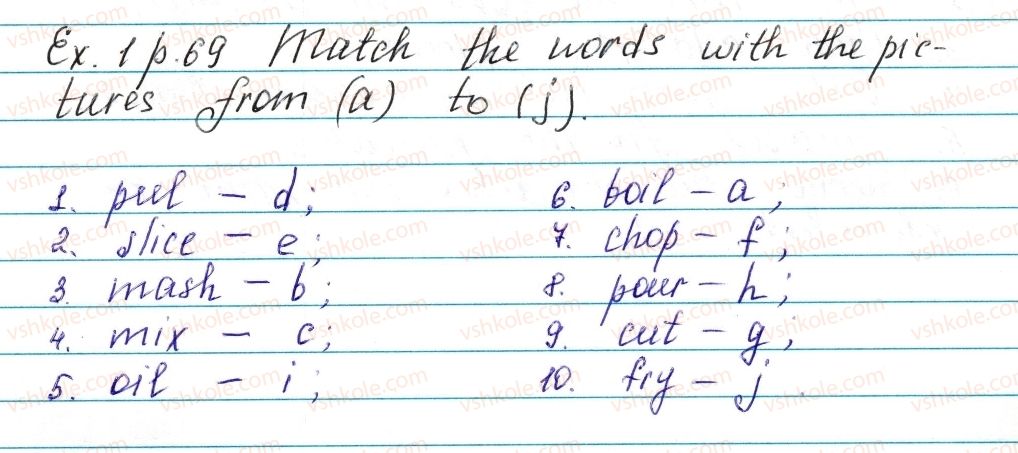 Ex. 1 p. 69 Match the words with the pic-
tures from (a) to (j).
1. peel - d;
2. slice - e;
3. mash - b;
4. mix - c;
5. oil - i;
6. boil - a;
7. chop - f;
8. pour - h;
9. cut - g;
10. fry - j
vshkole.com